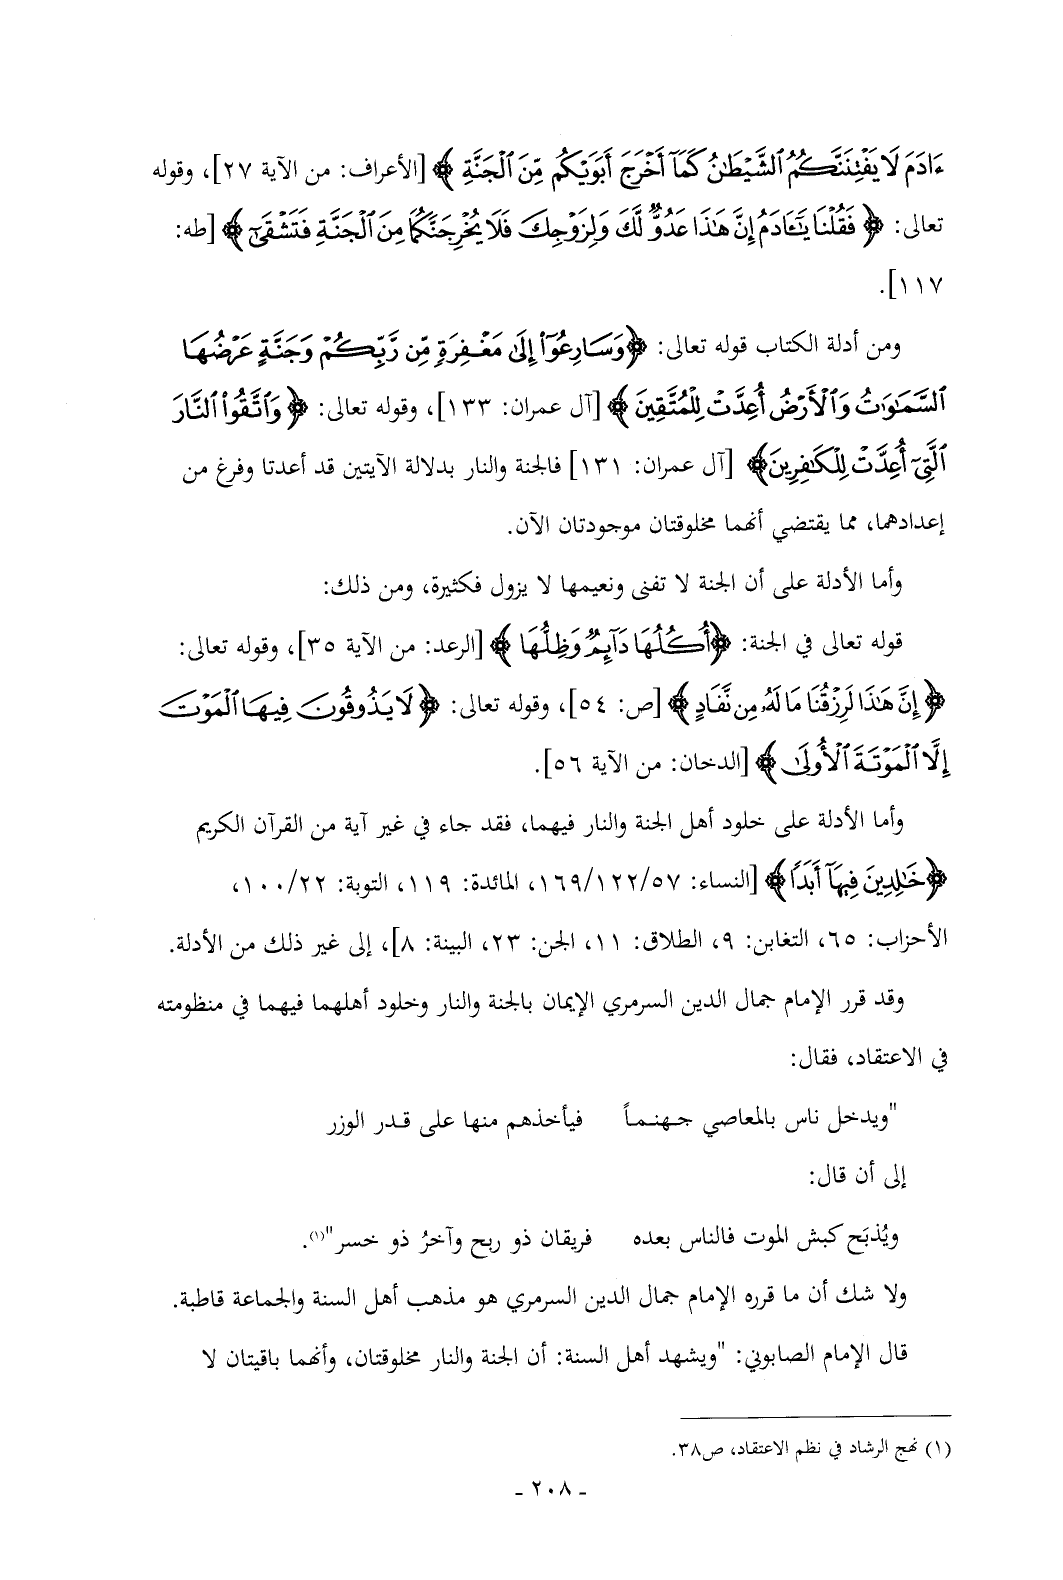 ءَادَمَ لَا يَفْتِنَنَّكُمُ ٱلشَّيْطَـٰنُ كَمَآ أَخْرَجَ أَبَوَيْكُم مِّنَ ٱلْجَنَّةِ ﴾ [الأعراف: من الآية ٢٧]، وقوله
تعالى: ﴿ فَقُلْنَا يَـٰٓـَٔادَمُ إِنَّ هَـٰذَا عَدُوٌّ لَّكَ وَلِزَوْجِكَ فَلَا يُخْرِجَنَّكُمَا مِنَ ٱلْجَنَّةِ فَتَشْقَىٰٓ ﴾ [طه:
١١٧].
ومن أدلة الكتاب قوله تعالى: ﴿وَسَارِعُوٓا۟ إِلَىٰ مَغْفِرَةٍ مِّن رَّبِّكُمْ وَجَنَّةٍ عَرْضُهَا
ٱلسَّمَـٰوَٰتُ وَٱلْأَرْضُ أُعِدَّتْ لِلْمُتَّقِينَ ﴾ [آل عمران: ١٣٣]، وقوله تعالى: ﴿ وَٱتَّقُوا۟ ٱلنَّارَ
ٱلَّتِىٓ أُعِدَّتْ لِلْكَـٰفِرِينَ﴾ [آل عمران: ١٣١] فالجنة والنار بدلالة الآيتين قد أعدتا وفرغ من
إعدادهما، مما يقتضي أنهما مخلوقتان موجودتان الآن.
وأما الأدلة على أن الجنة لا تفنى ونعيمها لا يزول فكثيرة، ومن ذلك:
قوله تعالى في الجنة: ﴿أُكُلُهَا دَآئِمٌ وَظِلُّهَا ﴾ [الرعد: من الآية ٣٥]، وقوله تعالى:
﴿ إِنَّ هَـٰذَا لَرِزْقُنَا مَا لَهُۥ مِن نَّفَادٍ ﴾ [ص: ٥٤]، وقوله تعالى: ﴿ لَا يَذُوقُونَ فِيهَا ٱلْمَوْتَ
إِلَّا ٱلْمَوْتَةَ ٱلْأُولَىٰ ﴾ [الدخان: من الآية ٥٦].
وأما الأدلة على خلود أهل الجنة والنار فيهما، فقد جاء في غير آية من القرآن الكريم
﴿خَـٰلِدِينَ فِيهَآ أَبَدًا ﴾ [النساء: ١٦٩/١٢٢/٥٧، المائدة: ١١٩، التوبة: ١٠٠/٢٢،
الأحزاب: ٦٥، التغابن: ٩، الطلاق: ١١، الجن: ٢٣، البينة: ٨]، إلى غير ذلك من الأدلة.
وقد قرر الإمام جمال الدين السرمري الإيمان بالجنة والنار وخلود أهلهما فيهما في منظومته
في الاعتقاد، فقال:
"ويدخل ناس بالمعاصي جهنماً فيأخذهم منها على قدر الوزر
إلى أن قال:
ويُذبَح كبش الموت فالناس بعده فريقان ذو ربح وآخرُ ذو خسر"(١).
ولا شك أن ما قرره الإمام جمال الدين السرمري هو مذهب أهل السنة والجماعة قاطبة.
قال الإمام الصابوني: "ويشهد أهل السنة: أن الجنة والنار مخلوقتان، وأنهما باقيتان لا
(١) نهج الرشاد في نظم الاعتقاد، ص٣٨.
- ٢٠٨ -